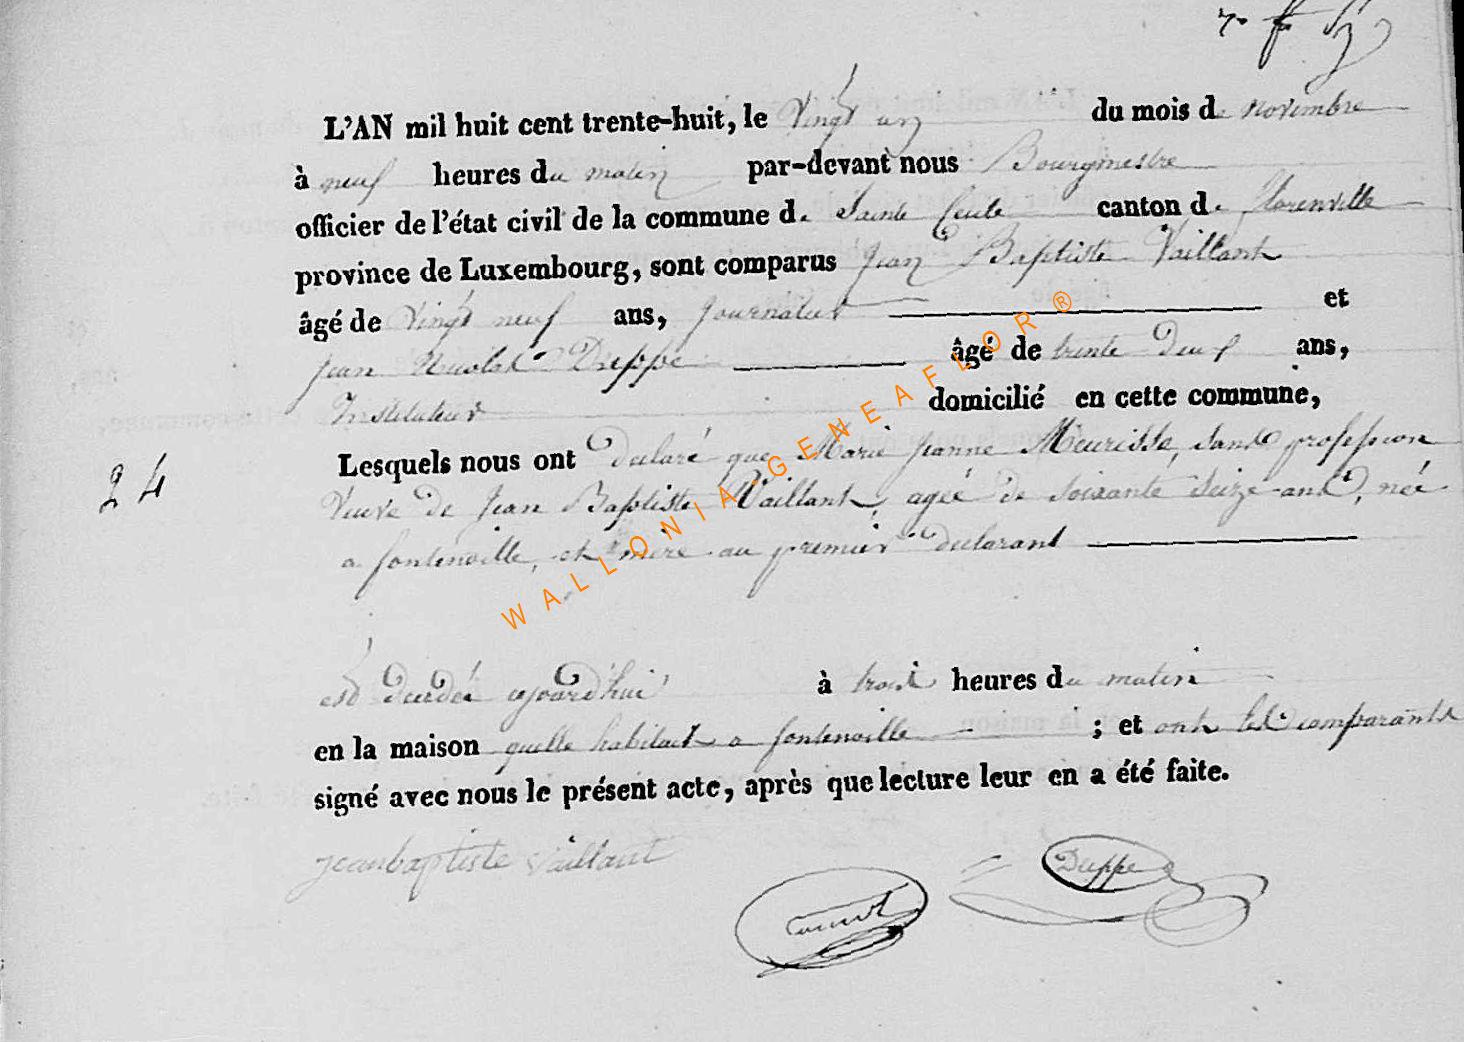 L'AN mil huit cent trente-huit, le Vingt un du mois de novembre
à neuf heures du matin par-devant nous Bourgmestre
officier de l'état civil de la commune de Sainte Cecile canton de florenville
province de Luxembourg, sont comparus Jean Baptiste Vaillant
âgé de Vingt neuf ans, Journalier et
Jean Nicolas Dieppe âgé de trente deux ans,
Instituteur domicilié en cette commune,
24
Lesquels nous ont declaré que Marie Jeanne Meurisse, sans profession
Veuve de Jean Baptiste Vaillant, agée de soixante seize ans, née
a fontenoille, et mère au premier declarant
est decedée ajourd'hui à trois heures du matin
en la maison quelle habitait a fontenoille ; et ont les comparants
signé avec nous le présent acte, après que lecture leur en a été faite.
jeanbaptiste vaillant
Dieppe
WALLONIA-GENEAFLOR®